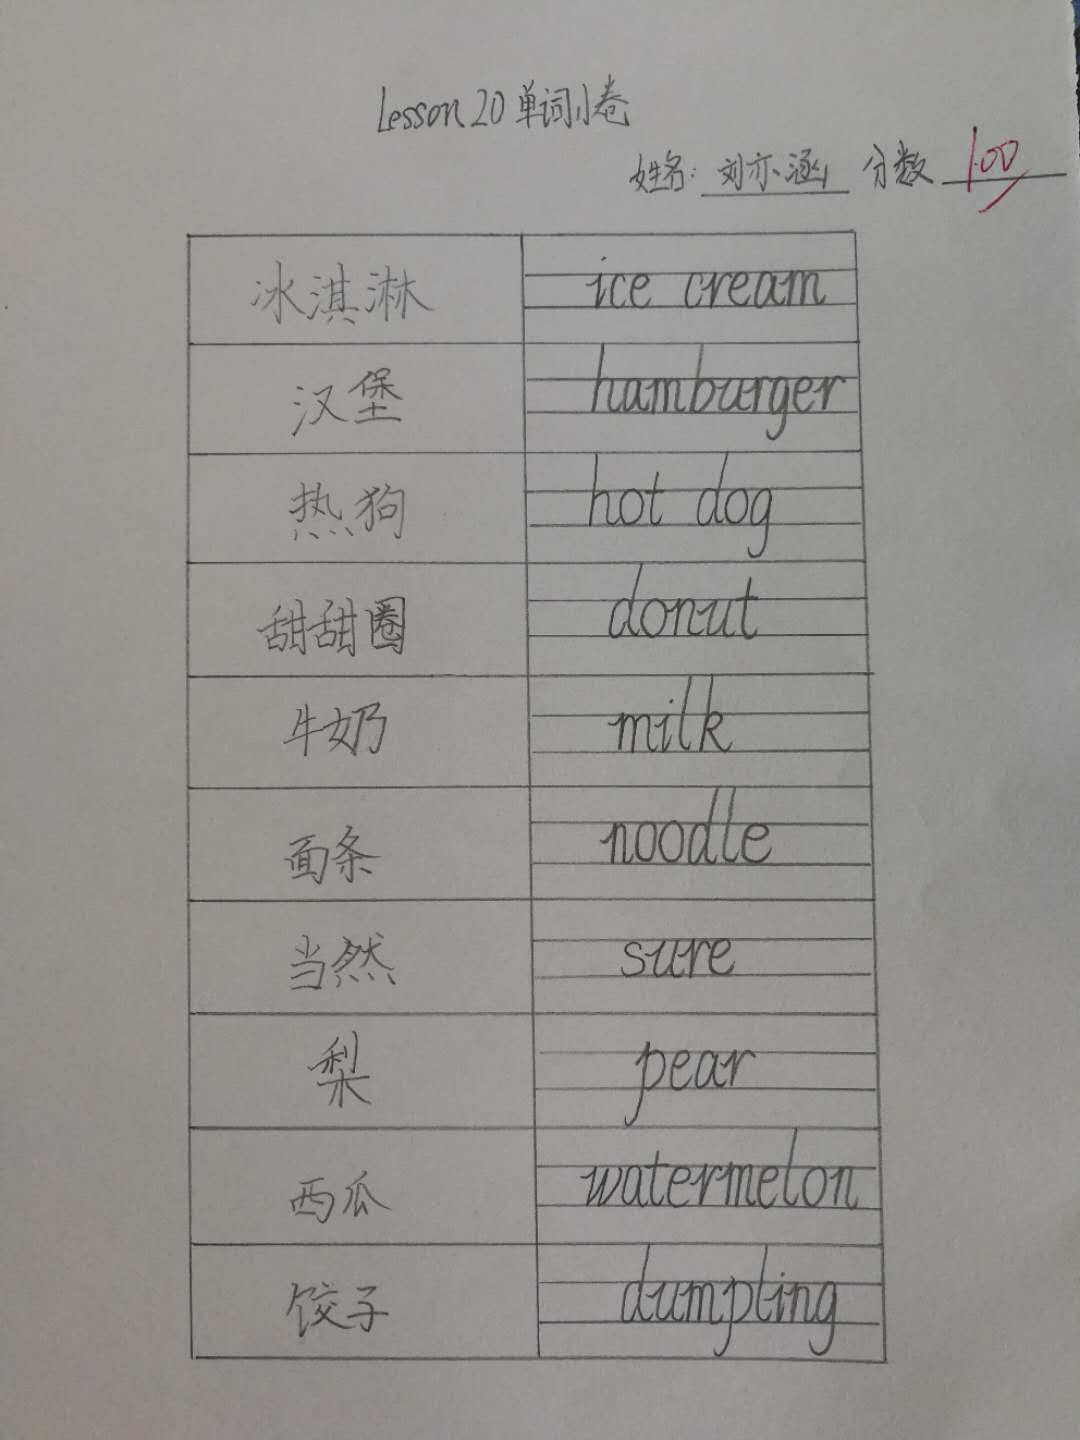 Lesson 20 单词小卷
姓名: 刘亦涵 分数 100
冰淇淋 ice cream
汉堡 hamburger
热狗 hot dog
甜甜圈 donut
牛奶 milk
面条 noodle
当然 sure
梨 pear
西瓜 watermelon
饺子 dumpling